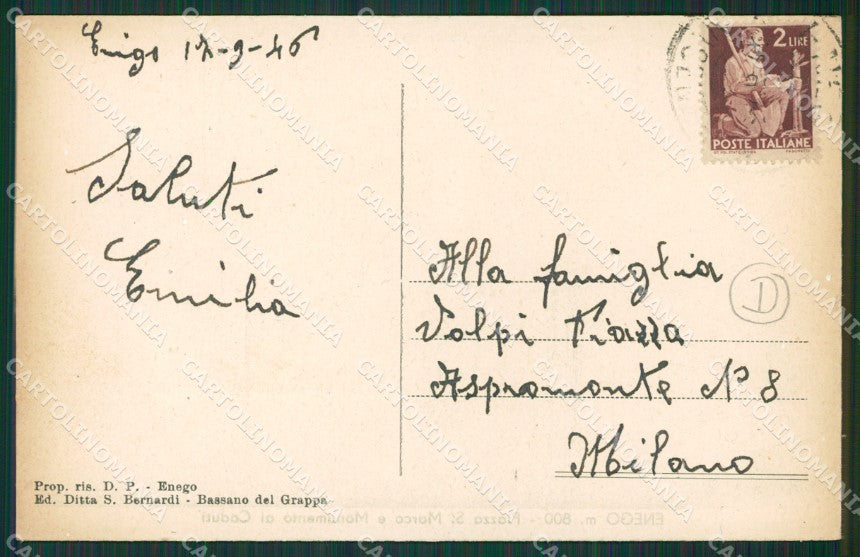 Enego 12-9-46
Saluti
Emilia
2 LIRE
POSTE ITALIANE
Alla famiglia
Volpi Piazza
Aspromonte N° 8
Milano
D
Prop. ris. D. P. - Enego
Ed. Ditta S. Bernardi - Bassano del Grappa
ENEGO m. 800 - Piazza S. Marco e Monumento ai Caduti
CARTOLINOMANIA